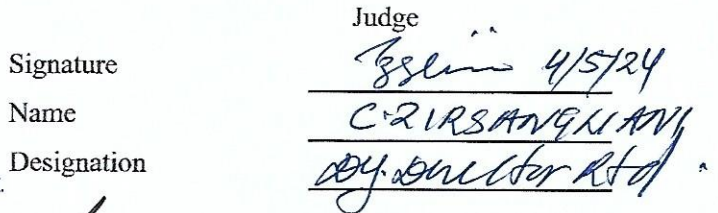 Judge
Signature 4/5/24
Name C. ZIRSANGLIANI
Designation Dy. Director Rtd.